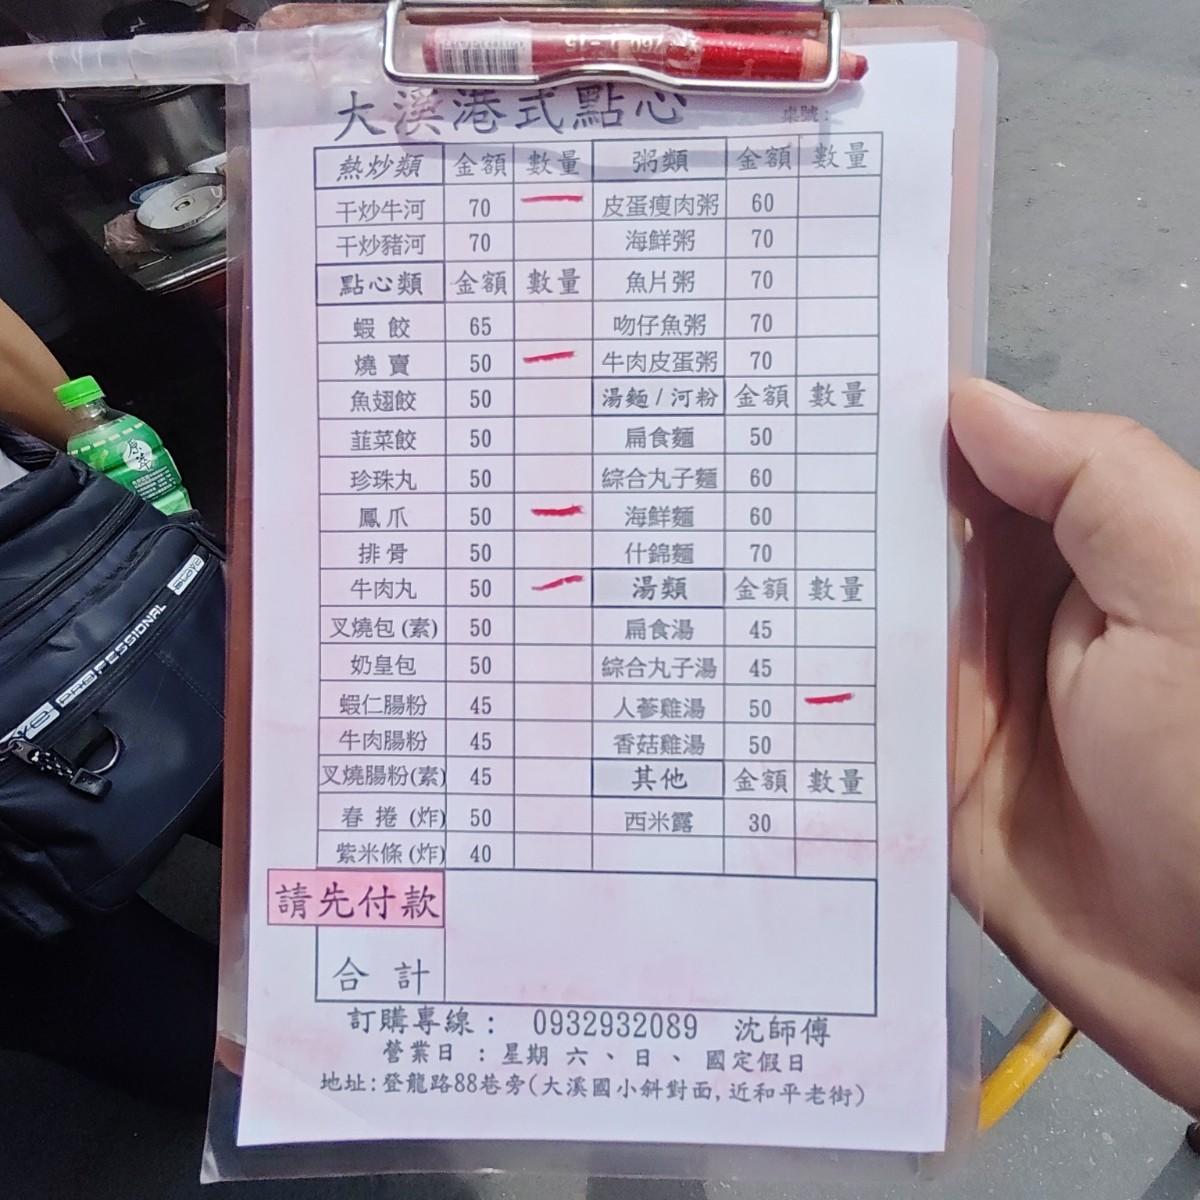 大溪港式點心
桌號:
熱炒類 金額 數量 粥類 金額 數量
干炒牛河 70 皮蛋瘦肉粥 60
干炒豬河 70 海鮮粥 70
點心類 金額 數量 魚片粥 70
蝦餃 65 吻仔魚粥 70
燒賣 50 牛肉皮蛋粥 70
魚翅餃 50 湯麵/河粉 金額 數量
韮菜餃 50 扁食麵 50
珍珠丸 50 綜合丸子麵 60
鳳爪 50 海鮮麵 60
排骨 50 什錦麵 70
牛肉丸 50 湯類 金額 數量
叉燒包(素) 50 扁食湯 45
奶皇包 50 綜合丸子湯 45
蝦仁腸粉 45 人蔘雞湯 50
牛肉腸粉 45 香菇雞湯 50
叉燒腸粉(素) 45 其他 金額 數量
春捲(炸) 50 西米露 30
紫米條(炸) 40
請先付款
合計
訂購專線: 0932932089 沈師傅
營業日:星期六、日、國定假日
地址:登龍路88巷旁(大溪國小斜對面,近和平老街)
原萃
PROFESSIONAL